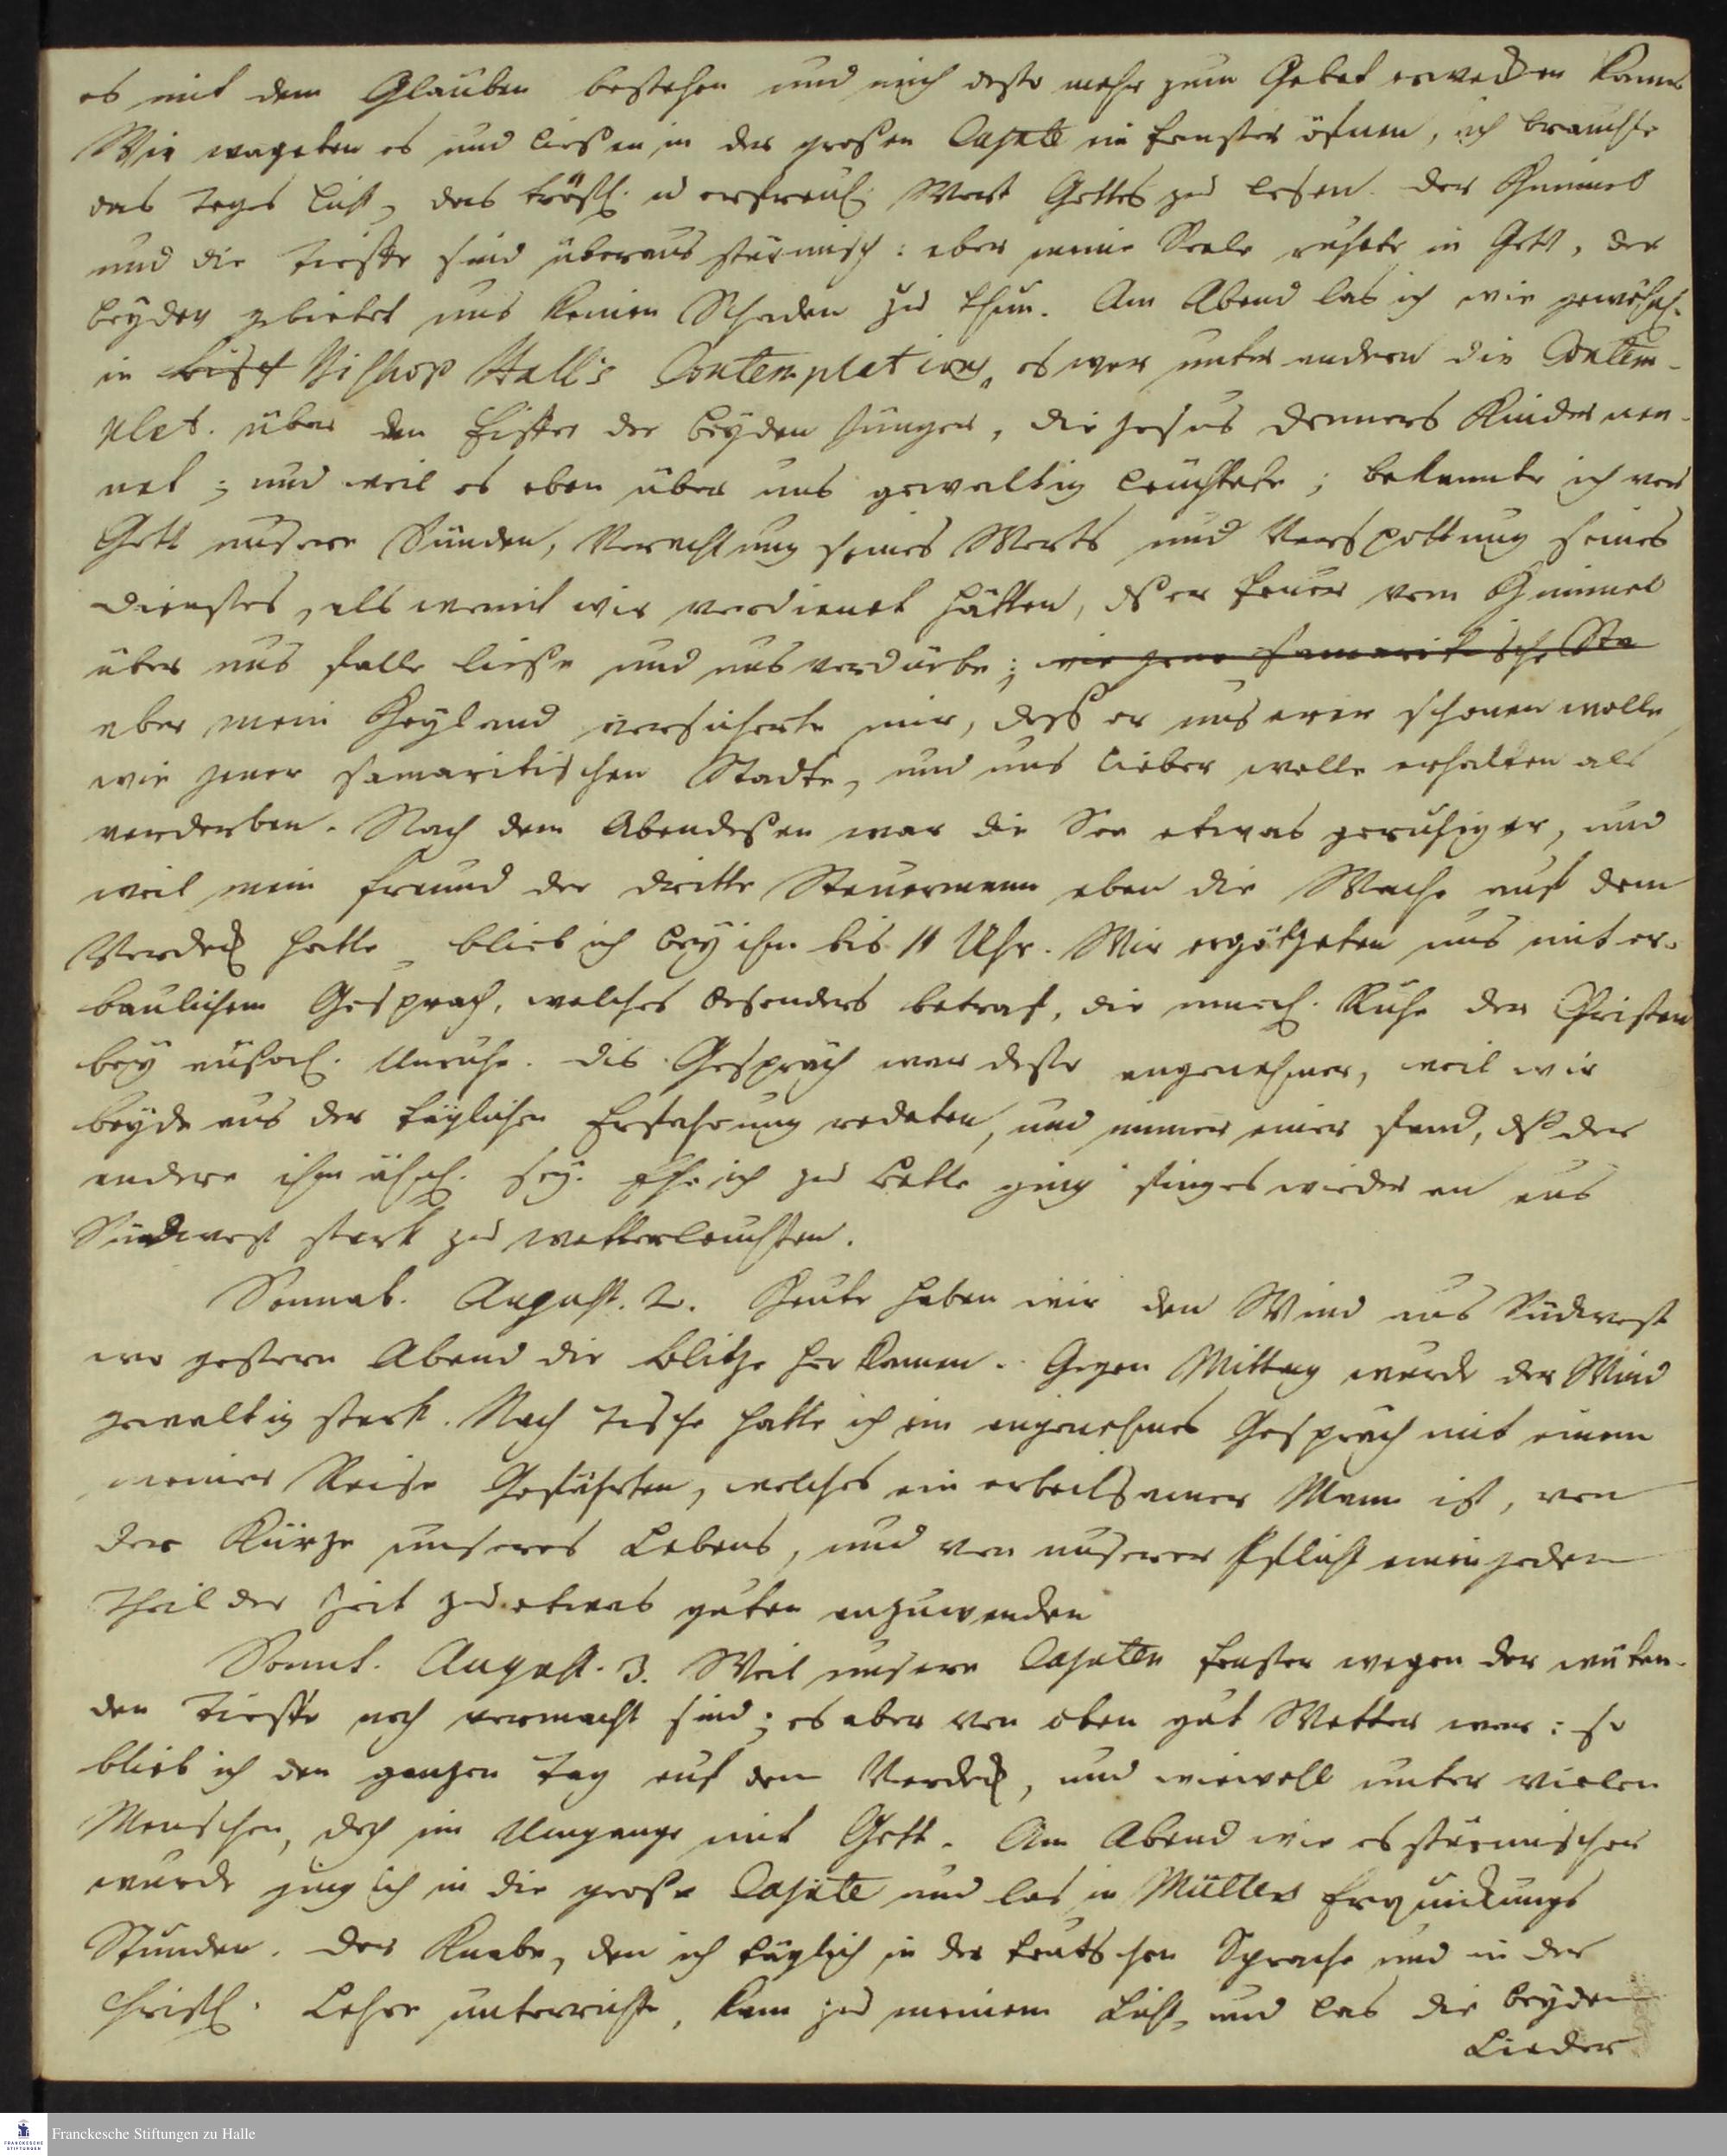 es mit dem Glauben bestehen und mich desto mehr zum Gebet erwecken kann
Wir wageten es und ließen in der großen Cajute ein Fenster öfnen, ich brauchte
das Tages Licht, das tröstl. u erfreul. Wort Gottes zu lesen. Der Himmel
und die Tieffe sind überaus stürmisch: aber meine Seele ruhete in Gott, der
beyden gebietet uns keinen Schaden zu thun. Am Abend las ich wie gewöhnl.
in Bisch Bishop Hall's Contemplations, es war unter andern die Contem-
plat. über den Eiffer der beyden Jünger, die Jesus Donners Kinder nen-
net; und weil es eben über uns gewaltig leuchtete; bekannte ich vor
Gott unsere Sünden, Verachtung seines Worts und Verspottung seines
Dienstes, als womit wir verdienet hätten, dß er Feuer vom Himmel
über uns falle ließe und uns verdürbe; wie jene samaritische Sta
aber mein Heyland versicherte mir, daß er unserer schonen wolle
wie jener samaritischen Stadte, und uns lieber wolle erhalten als
verderben. Nach dem Abendeßen war die See etwas geruhiger, und
weil mein Freund der dritte Steuermann eben die Wache auf dem
Verdeck hatte, blieb ich bey ihm bis 11 Uhr. Wir ergötzeten uns mit er-
baulichem Gespräch, welches besonders betraf, die innerl. Ruhe der Christen
bey äußerl. Unruhe. Dis Gespräch war desto angenehmer, weil wir
beyde aus der täglichen Erfahrung redeten, und immer einer fand, dß der
andere ihm ähnl. sey. Ehe ich zu Bette ging finges wieder an aus
Südwest stark zu wetterleuchten.
Sonnab. August. 2. Heute haben wir den Wind aus Südwest
wo gestern Abend die Blitze her kamen. Gegen Mittag wurde der Wind
gewaltig stark. Nach Tische hatte ich ein angenehmes Gespräch mit einem
meiner Reise Gefährten, welches ein arbeitsamer Mann ist, von
der Kürze unseres Lebens, und von unserer Pflicht einen jeden
Theil der Zeit zu etwas guten anzuwenden
Sonnt. August. 3. Weil unsere Cajuten Fenster wegen der wüten-
den Tieffe noch vermacht sind; es aber von oben gut Wetter war: so
blieb ich den ganzen Tag auf dem Verdeck, und wiewoll unter vielen
Menschen, doch im Umgange mit Gott. Am Abend wie es stürmischer
wurde ging ich in die große Cajüte und las in Müllers Erquickungs
Stunden. Der Knabe, den ich täglich in der teutschen Sprache und in der
Christl. Lehre unterrichte, kam zu meinem Licht, und las die beyden
Lieder
Franckesche Stiftungen zu Halle
FRANCKESCHE
STIFTUNGEN